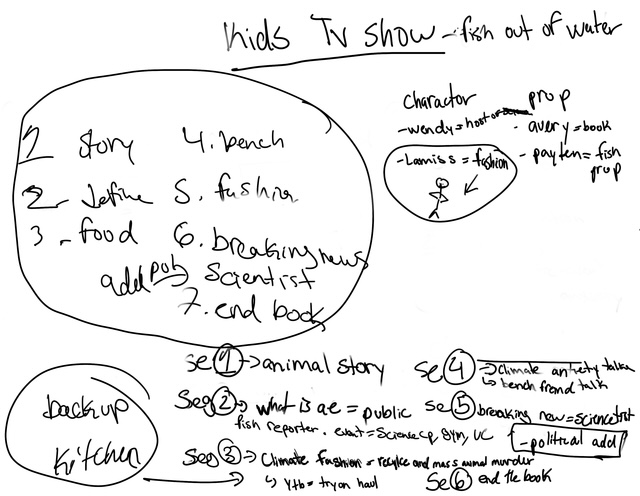 Kids Tv show - fish out of water
charactor
- wendy = host or
- Lamiss = fashion
prop
- avery = book
- payten = fish
prop
1 story
2 - define
3 - food
4. bench
5. fashion
6. breaking news
add pol → scientist
7. end book
backup
kitchen
Seg 1 → animal story
Seg 2 → what is ae = public
fish reporter. event = Science cp, gym, UC
Seg 3 → Climate fashion = recylce and mass animal murder
↳ ytb = try on haul
Seg 4 → climate anxiety talk
↳ bench friend talk
Seg 5 breaking new = sciencetist
- political add
Se 6 end the book